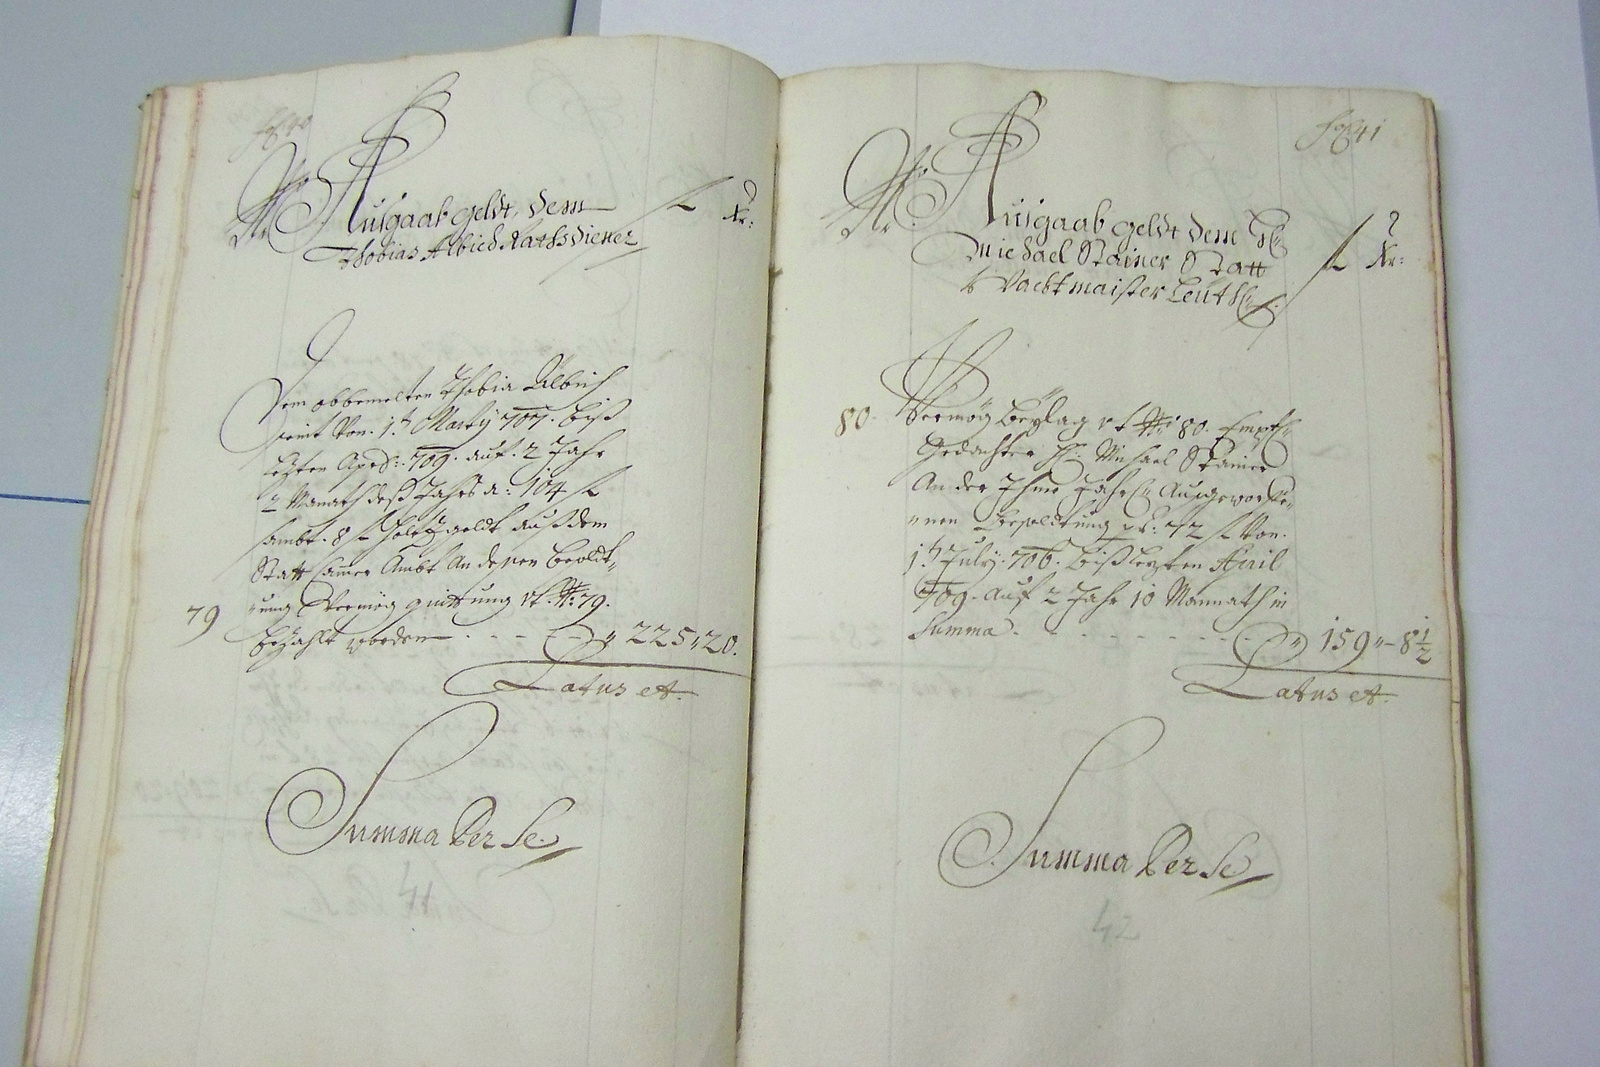 fol 40
Nr
Ausgaab geldt, dem
Thobias Albich Rathsdiener
fl
Xr:
Dem obbemelten Thobia Albrich
seint Von 1t Marty 707. biß
lezten April: 709. auf 2 Jahr
2 Monath deß Jahrs a: 104 fl
sambt 8 fl Holtzgeldt auß dem
Statt Camer Ambt An deren besoldt-
ung Vermög quittung No: 79.
79
bezahlt worden
225 " 20.
Latus et
Summa Per Se
41
fol 41
Nr
Ausgaab geldt dem H
Michael Stainer Statt
Wachtmaister Leuth
fl
Xr:
80.
Vermög Beylag No: 80. Empf
Gedachter H: Michael Stainer
An der Ihme Jahrl Ausgeworffe-
nen Besoldtung pr: 72 fl Von
1t July 706. biß lezten April
709. auf 2 Jahr 10 Monnath in
Summa
159 " - 8 1/2
Latus et
Summa Per Se
42